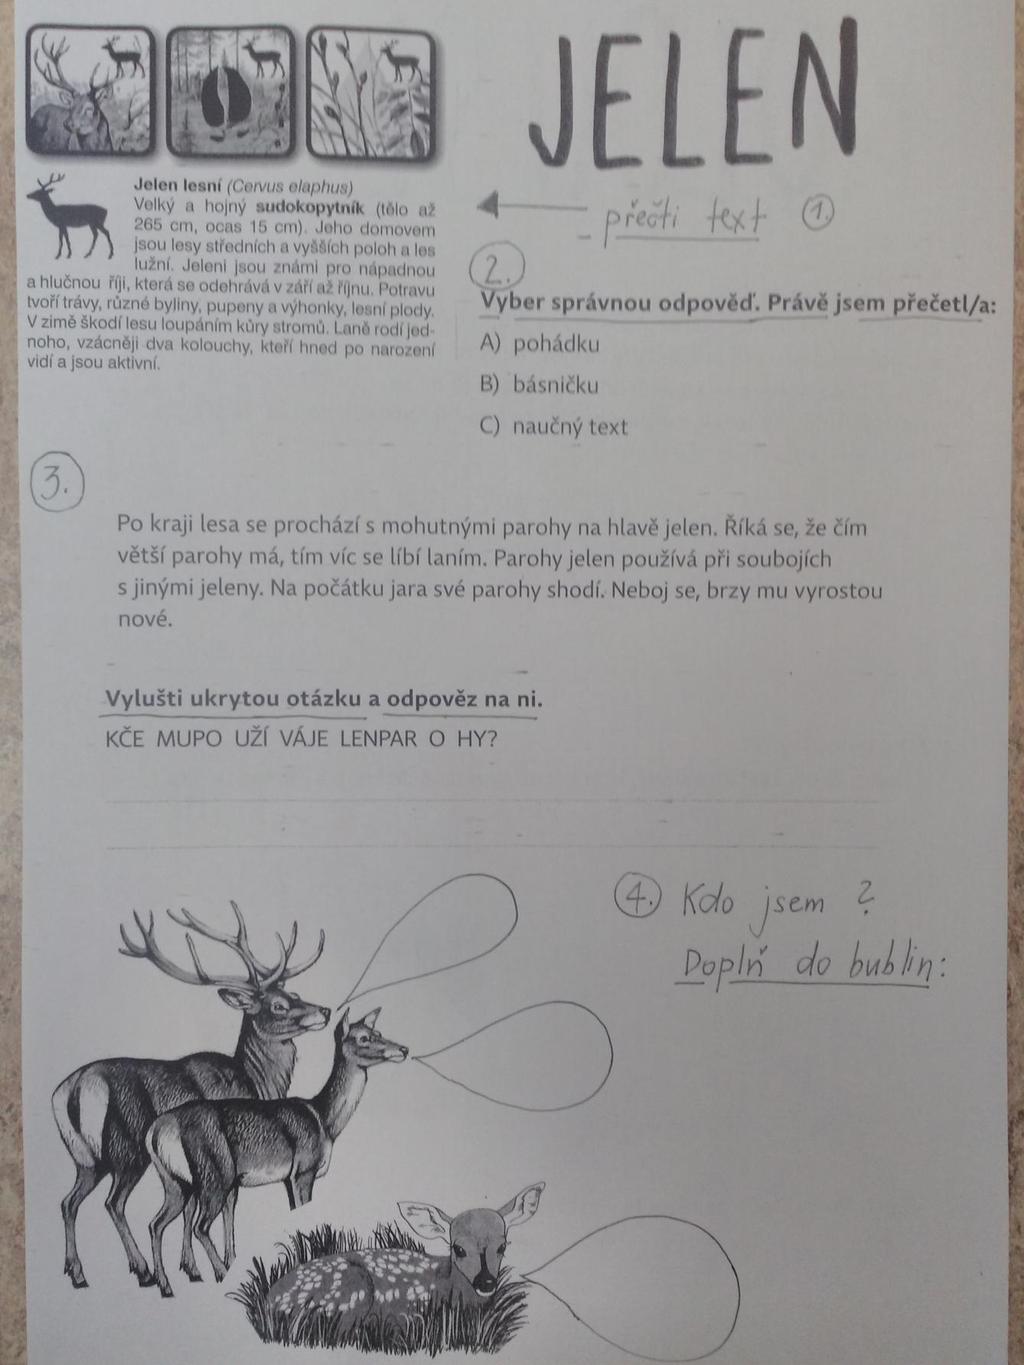 JELEN
Jelen lesní (Cervus elaphus)
Velký a hojný sudokopytník (tělo až
265 cm, ocas 15 cm). Jeho domovem
jsou lesy středních a vyšších poloh a les
lužní. Jeleni jsou známi pro nápadnou
a hlučnou říji, která se odehrává v září až říjnu. Potravu
tvoří trávy, různé byliny, pupeny a výhonky, lesní plody.
V zimě škodí lesu loupáním kůry stromů. Laně rodí jed-
noho, vzácněji dva kolouchy, kteří hned po narození
vidí a jsou aktivní.
- přečti text 1.
2.
Vyber správnou odpověď. Právě jsem přečetl/a:
A) pohádku
B) básničku
C) naučný text
3.
Po kraji lesa se prochází s mohutnými parohy na hlavě jelen. Říká se, že čím
větší parohy má, tím víc se líbí laním. Parohy jelen používá při soubojích
s jinými jeleny. Na počátku jara své parohy shodí. Neboj se, brzy mu vyrostou
nové.
Vylušti ukrytou otázku a odpověz na ni.
KČE MUPO UŽÍ VÁJE LENPAR O HY?
4. Kdo jsem ?
Doplň do bublin: